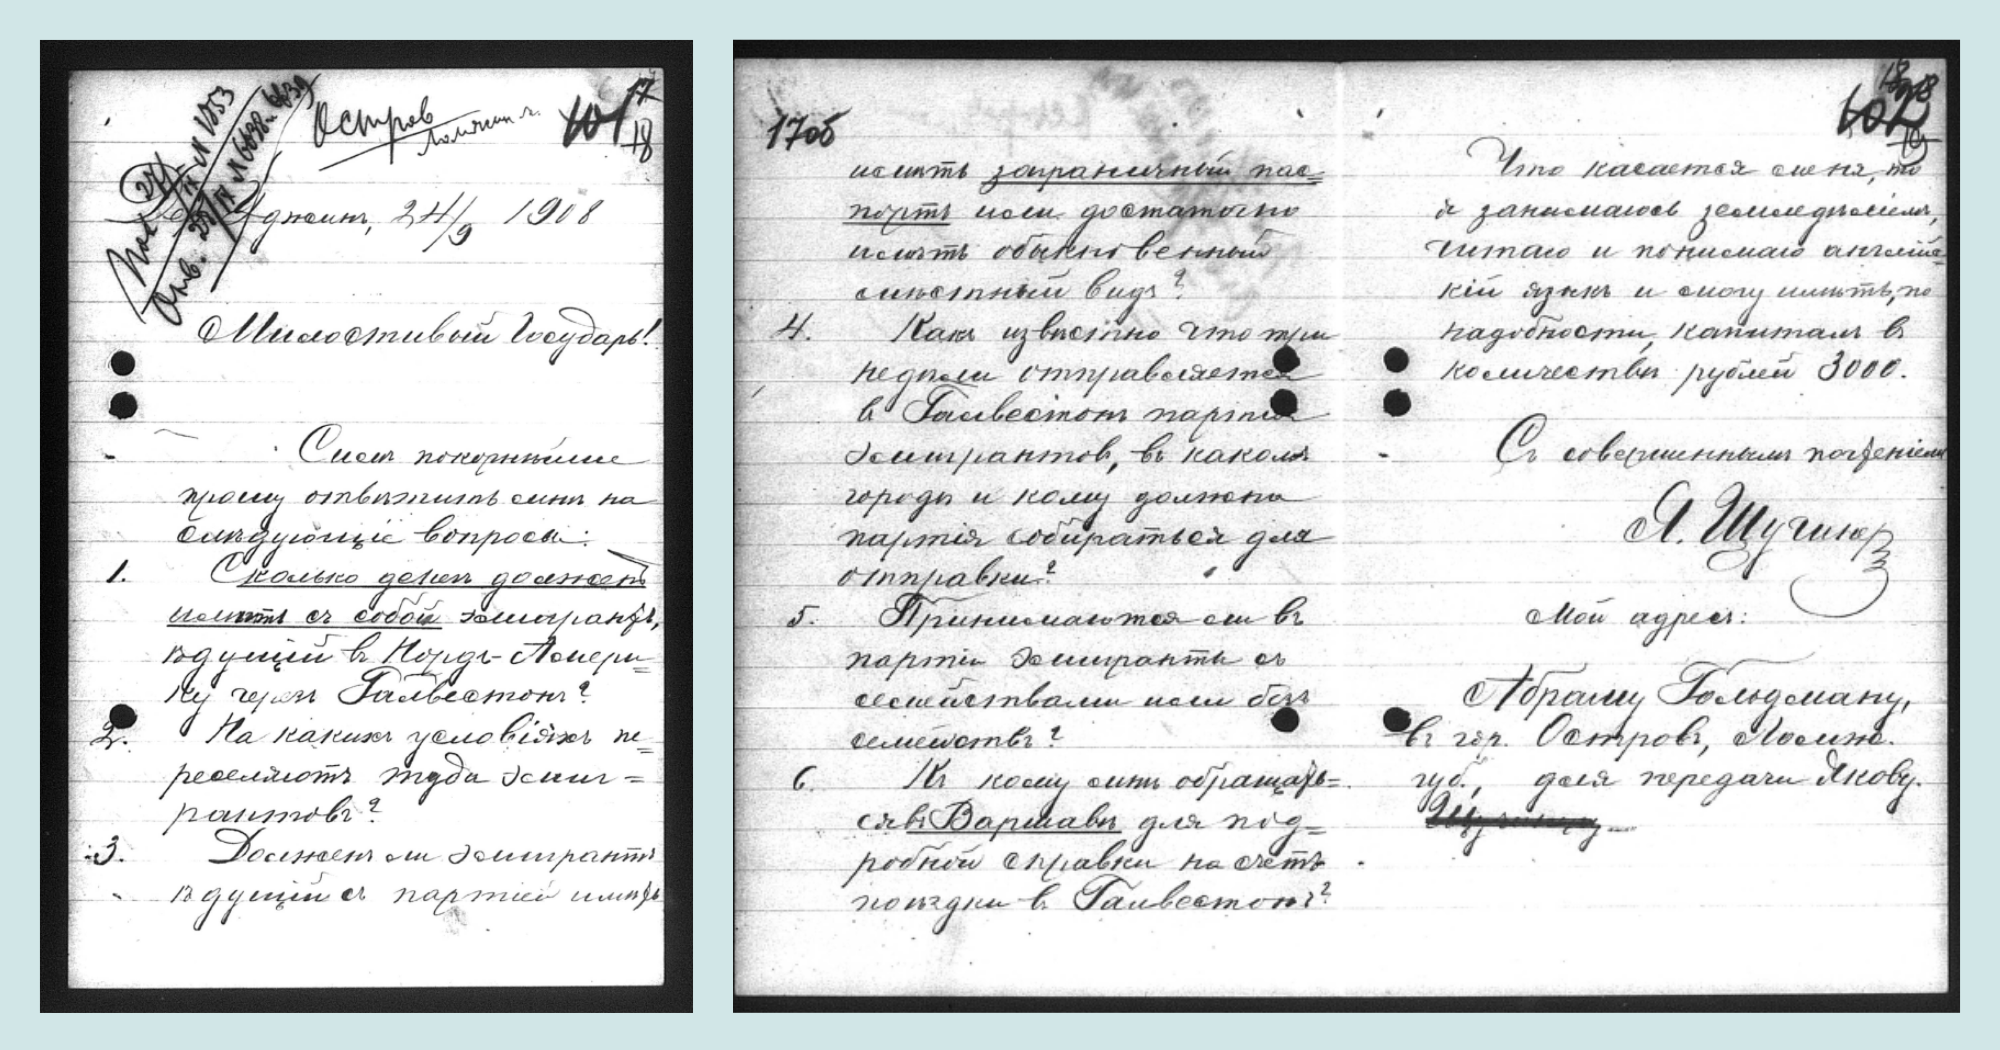 17
18
Остров
Ломжин. г.
24/9 1908
Милостивый Государь!
Сим покорнѣйше
прошу отвѣтить мнѣ на
слѣдующіе вопросы:
1. Сколько денег должен
имѣть съ собой эмигрантъ,
ѣдущій в Нордъ-Амери=
ку через Галвестонъ?
2. На каких условіяхъ пе=
реселяютъ туда эмиг=
рантовъ?
3. Долженъ ли эмигрантъ
ѣдущій съ партіей имѣть
17об
имѣть заграничный пас=
портъ или достаточно
имѣть обыкновенный
мѣстный видъ?
4. Какъ извѣстно что три
недѣли отправляется
в Галвестонъ партія
эмигрантов, въ каком
городѣ и кому должна
партія собираться для
отправки?
5. Принимаются ли въ
партіи эмигранты съ
семействами или безъ
семействъ?
6. Къ кому мнѣ обращать=
ся въ Варшавѣ для под=
робной справки на счетъ
поѣздки в Галвестонъ?
18
Что касается меня, то
я занимаюсь земледѣліем,
читаю и понимаю англійс=
кій языкъ и могу имѣть, по
надобности, капиталъ в
количествѣ рублей 3000.
Съ совершенным почтеніем
Я. Щучинер
Мой адресъ:
Абраму Гольдману,
въ гор. Островъ, Ломж.
губ., для передачи Якову.